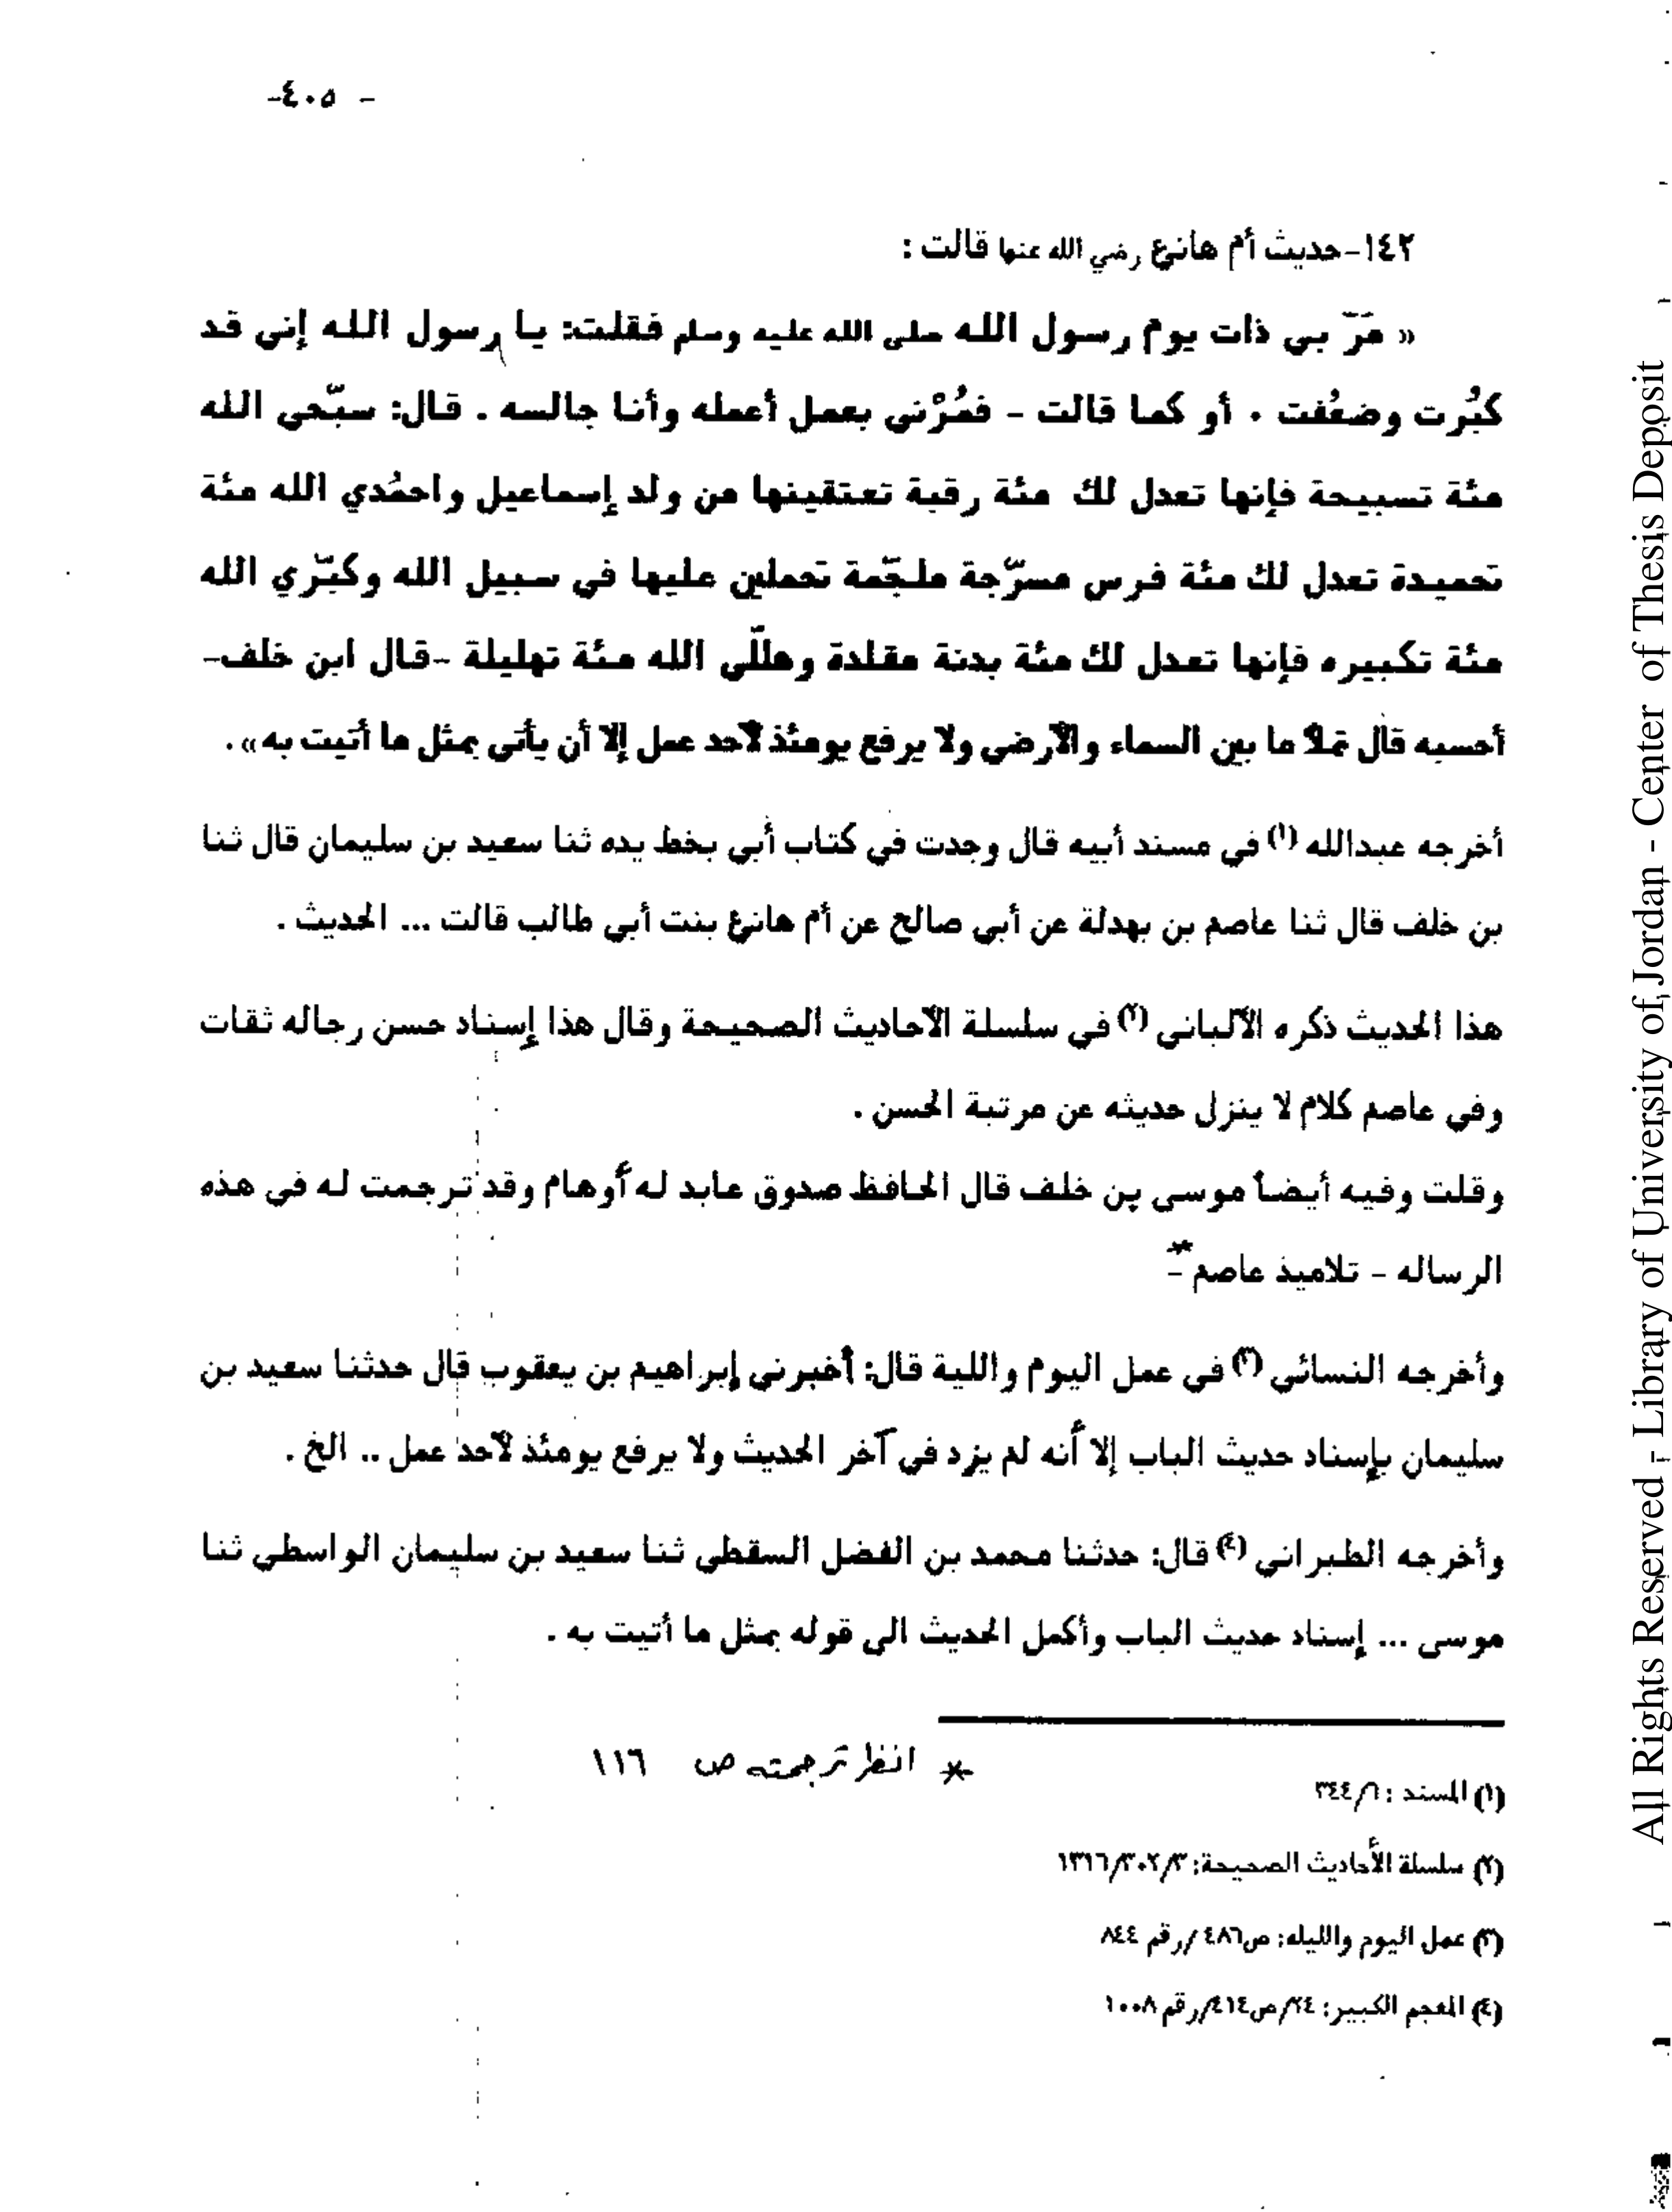 - ٤٠٥-
١٤٢-حديث أم هانئ رضي الله عنها قالت :
« مَرّ بي ذات يوم رسول الله صلى الله عليه وسلم فقلت: يا رسول الله إني قد
كبُرت وضعُفت . أو كما قالت - فمُرْني بعمل أعمله وأنا جالسه . قال: سبّحي الله
مئة تسبيحة فإنها تعدل لك مئة رقبة تعتقينها من ولد إسماعيل واحمُدي الله مئة
تحميدة تعدل لك مئة فرس مسرّجة ملجّمة تحملين عليها في سبيل الله وكبّري الله
مئة تكبيره فإنها تعدل لك مئة بدنة مقلدة وهللّي الله مئة تهليلة -قال ابن خلف-
أحسبه قال تملأ ما بين السماء والأرض ولا يرفع يومئذ لأحد عمل إلا أن يأتي بمثل ما أتيت به» .
أخرجه عبدالله (١) في مسند أبيه قال وجدت في كتاب أبي بخط يده ثنا سعيد بن سليمان قال ثنا
بن خلف قال ثنا عاصم بن بهدلة عن أبي صالح عن أم هانئ بنت أبي طالب قالت ... الحديث .
هذا الحديث ذكره الألباني (٢) في سلسلة الأحاديث الصحيحة وقال هذا إسناد حسن رجاله ثقات
وفي عاصم كلام لا ينزل حديثه عن مرتبة الحسن .
وقلت وفيه أيضاً موسى بن خلف قال الحافظ صدوق عابد له أوهام وقد ترجمت له في هذه
الرساله - تلاميذ عاصم* -
وأخرجه النسائي (٣) في عمل اليوم والليلة قال: أخبرني إبراهيم بن يعقوب قال حدثنا سعيد بن
سليمان بإسناد حديث الباب إلا أنه لم يزد في آخر الحديث ولا يرفع يومئذ لأحد عمل .. الخ .
وأخرجه الطبراني (٤) قال: حدثنا محمد بن الفضل السقطي ثنا سعيد بن سليمان الواسطي ثنا
موسى ... إسناد حديث الباب وأكمل الحديث الى قوله بمثل ما أتيت به .
* انظر ترجمته ص ١١٦
(١) المسند : ٣٤٤/٦
(٢) سلسلة الأحاديث الصحيحة: ١٣١٦/٣٠٢/٣
(٣) عمل اليوم والليله: ص٤٨٦ /رقم ٨٤٤
(٤) المعجم الكبير: ٢٤/ص٤١٤/رقم ١٠٠٨
All Rights Reserved - Library of University of Jordan - Center of Thesis Deposit